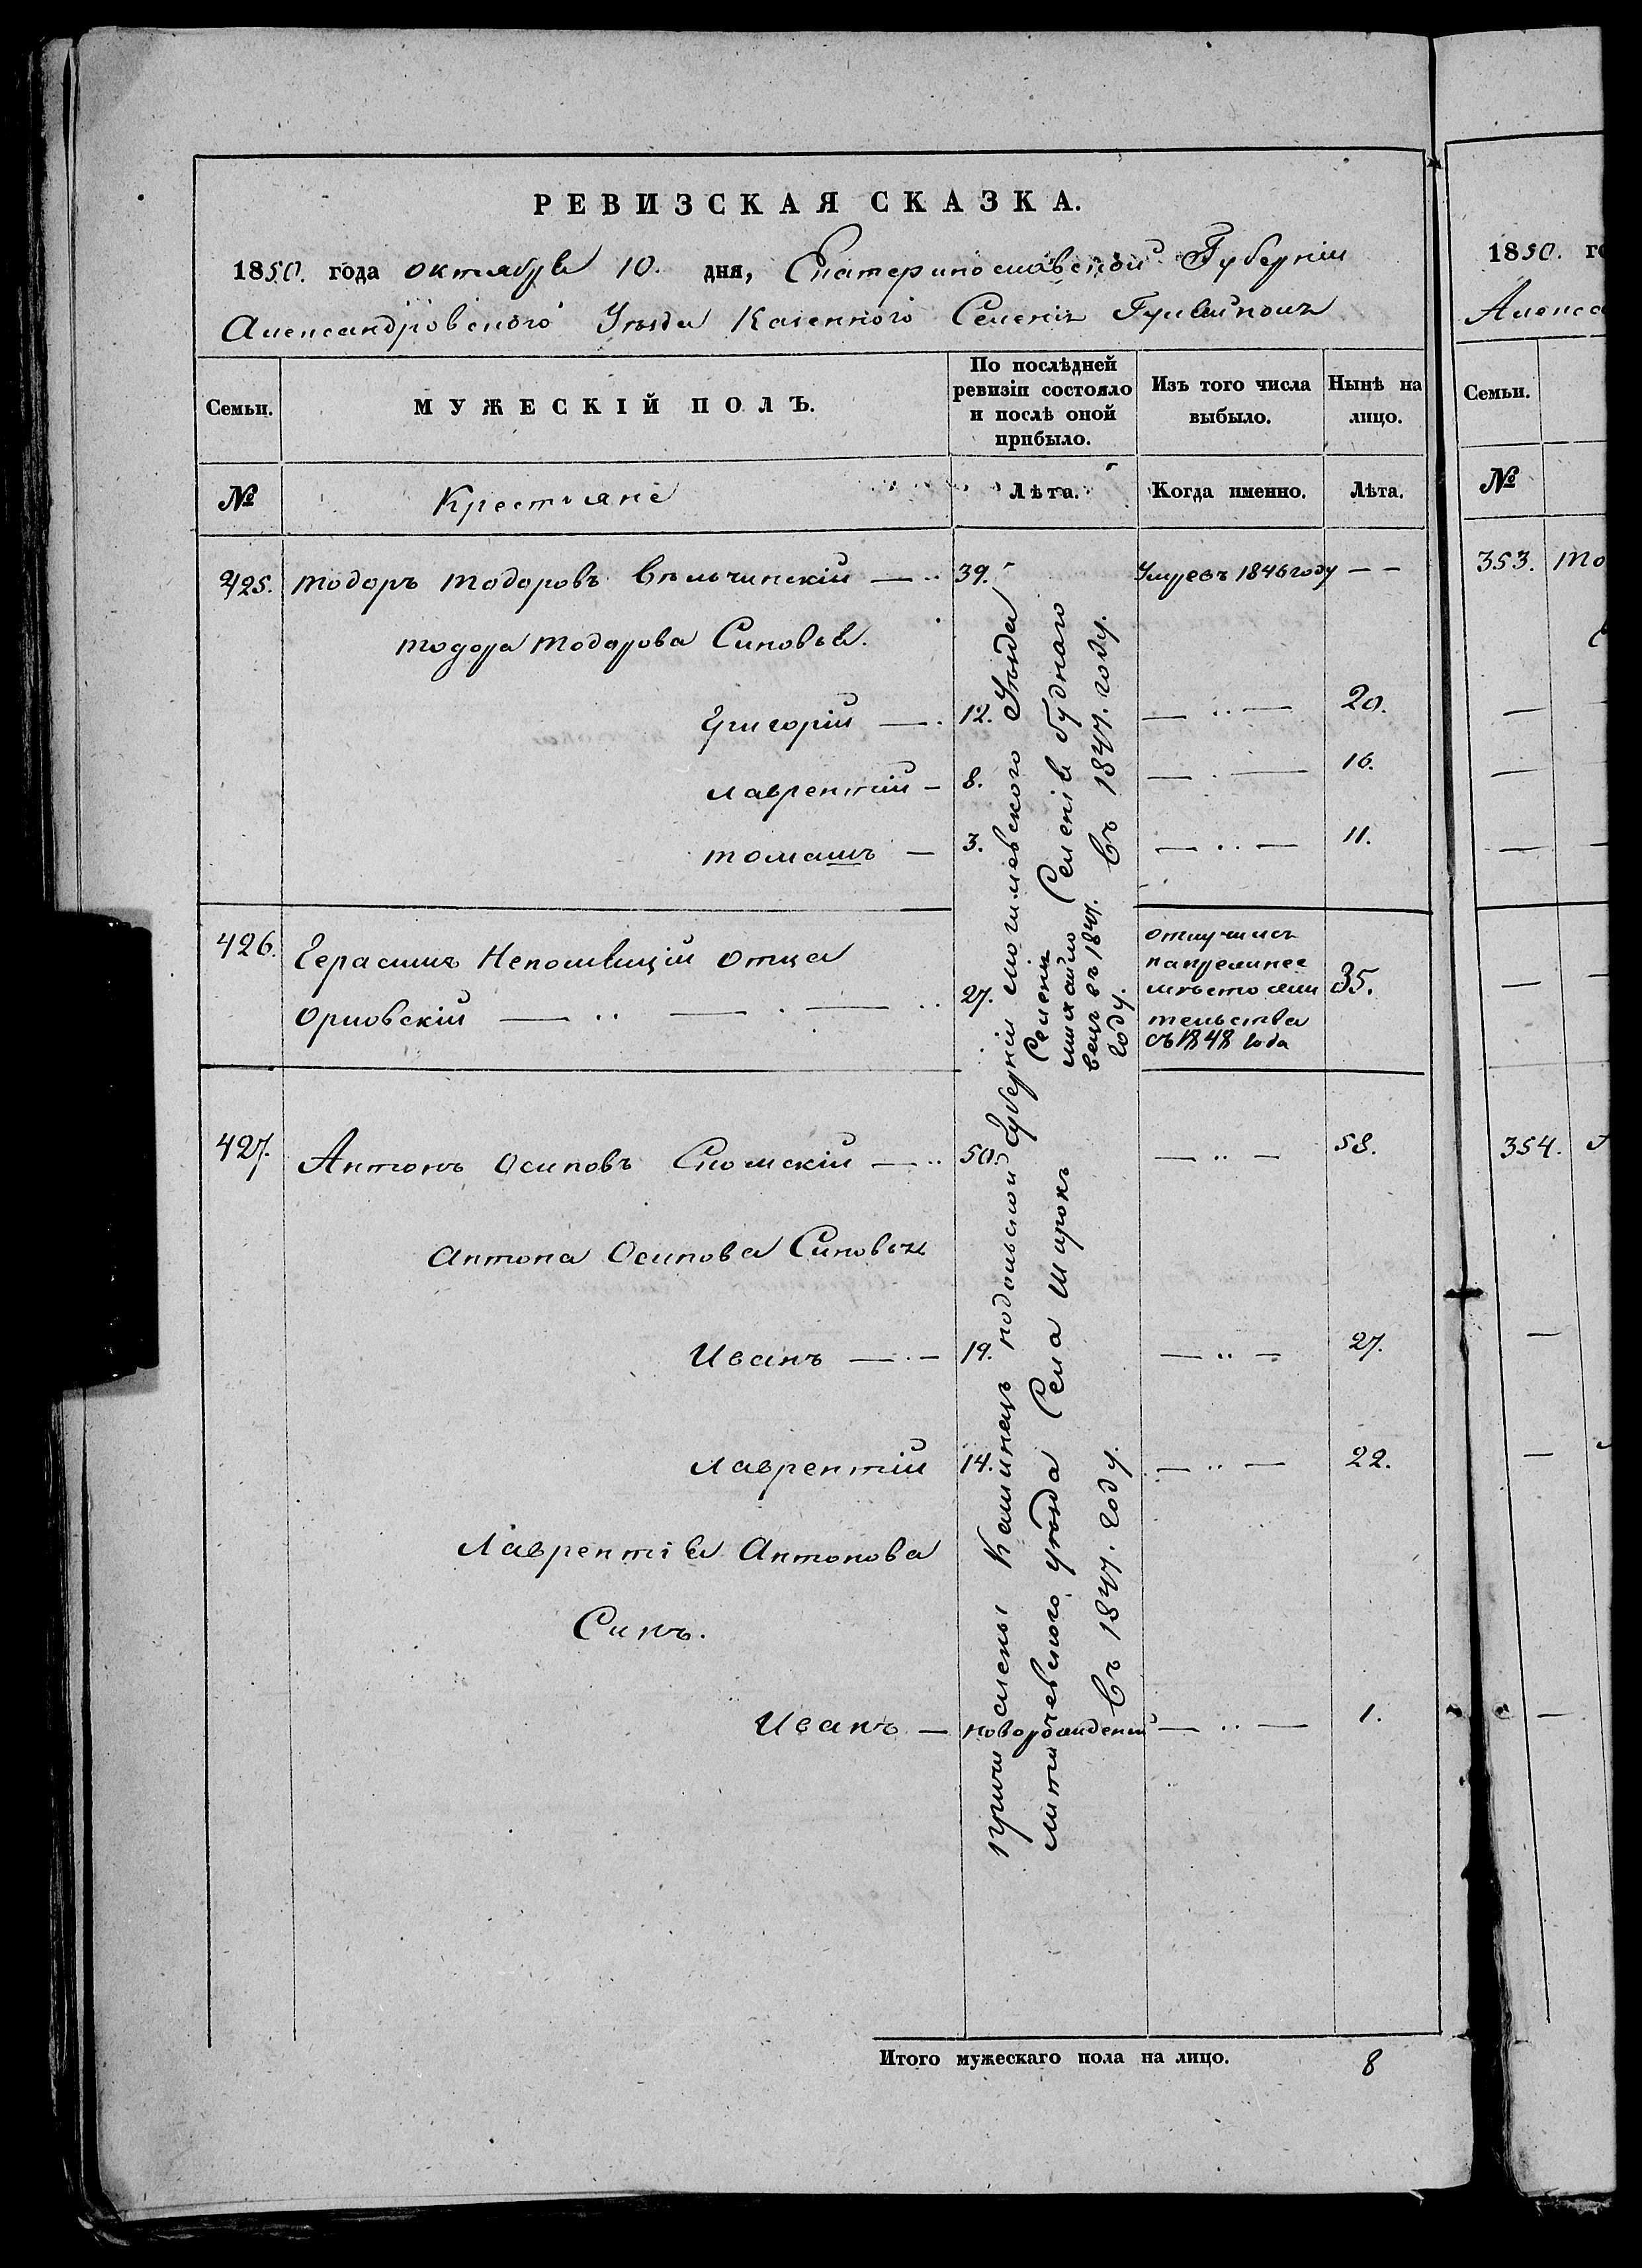 РЕВИЗСКАЯ СКАЗКА.
1850. года октября 10. дня, Екатеринославской Губерніи
Александровского Уезда Казенного Селенія Гуляйполя
Семьи.
МУЖЕСКІЙ ПОЛЪ.
По послѣдней
ревизіи состояло
и послѣ оной
прибыло.
Изъ того числа
выбыло.
Нынѣ на
лицо.
№
Крестьяне
Лѣта.
Когда именно.
Лѣта.
425. тодоръ тодоровъ — 39. Умревъ 1846 году — —
тодора тодорова Синовья.
Григорій — 12. — 20.
лаврентій — 8. — 16.
томашъ — 3. — 11.
426. Герасимъ отца
Орловскій — 27. 35.
отлучилсь
мѣсто жи
тельства
съ 1848 года
427. Антонъ Осиповъ — 50. — 58.
Антона Осипова Синовья
Иванъ — 19. — 27.
лаврентій 14. — 22.
Лаврентія Антонова
Синъ.
Иванъ — новорожденій — 1.
причислены Каминецъ подольской Губерніи могилевского Уезда
Селенія Рудного
Въ 1847. году.
Селенія
михайло
вецъ въ 1847.
году.
литичевского уѣзда Села Шарокъ
Въ 1847. году.
Итого мужескаго пола на лицо. 8
1850. го
Алекса
Семьи.
№
353. то
354.